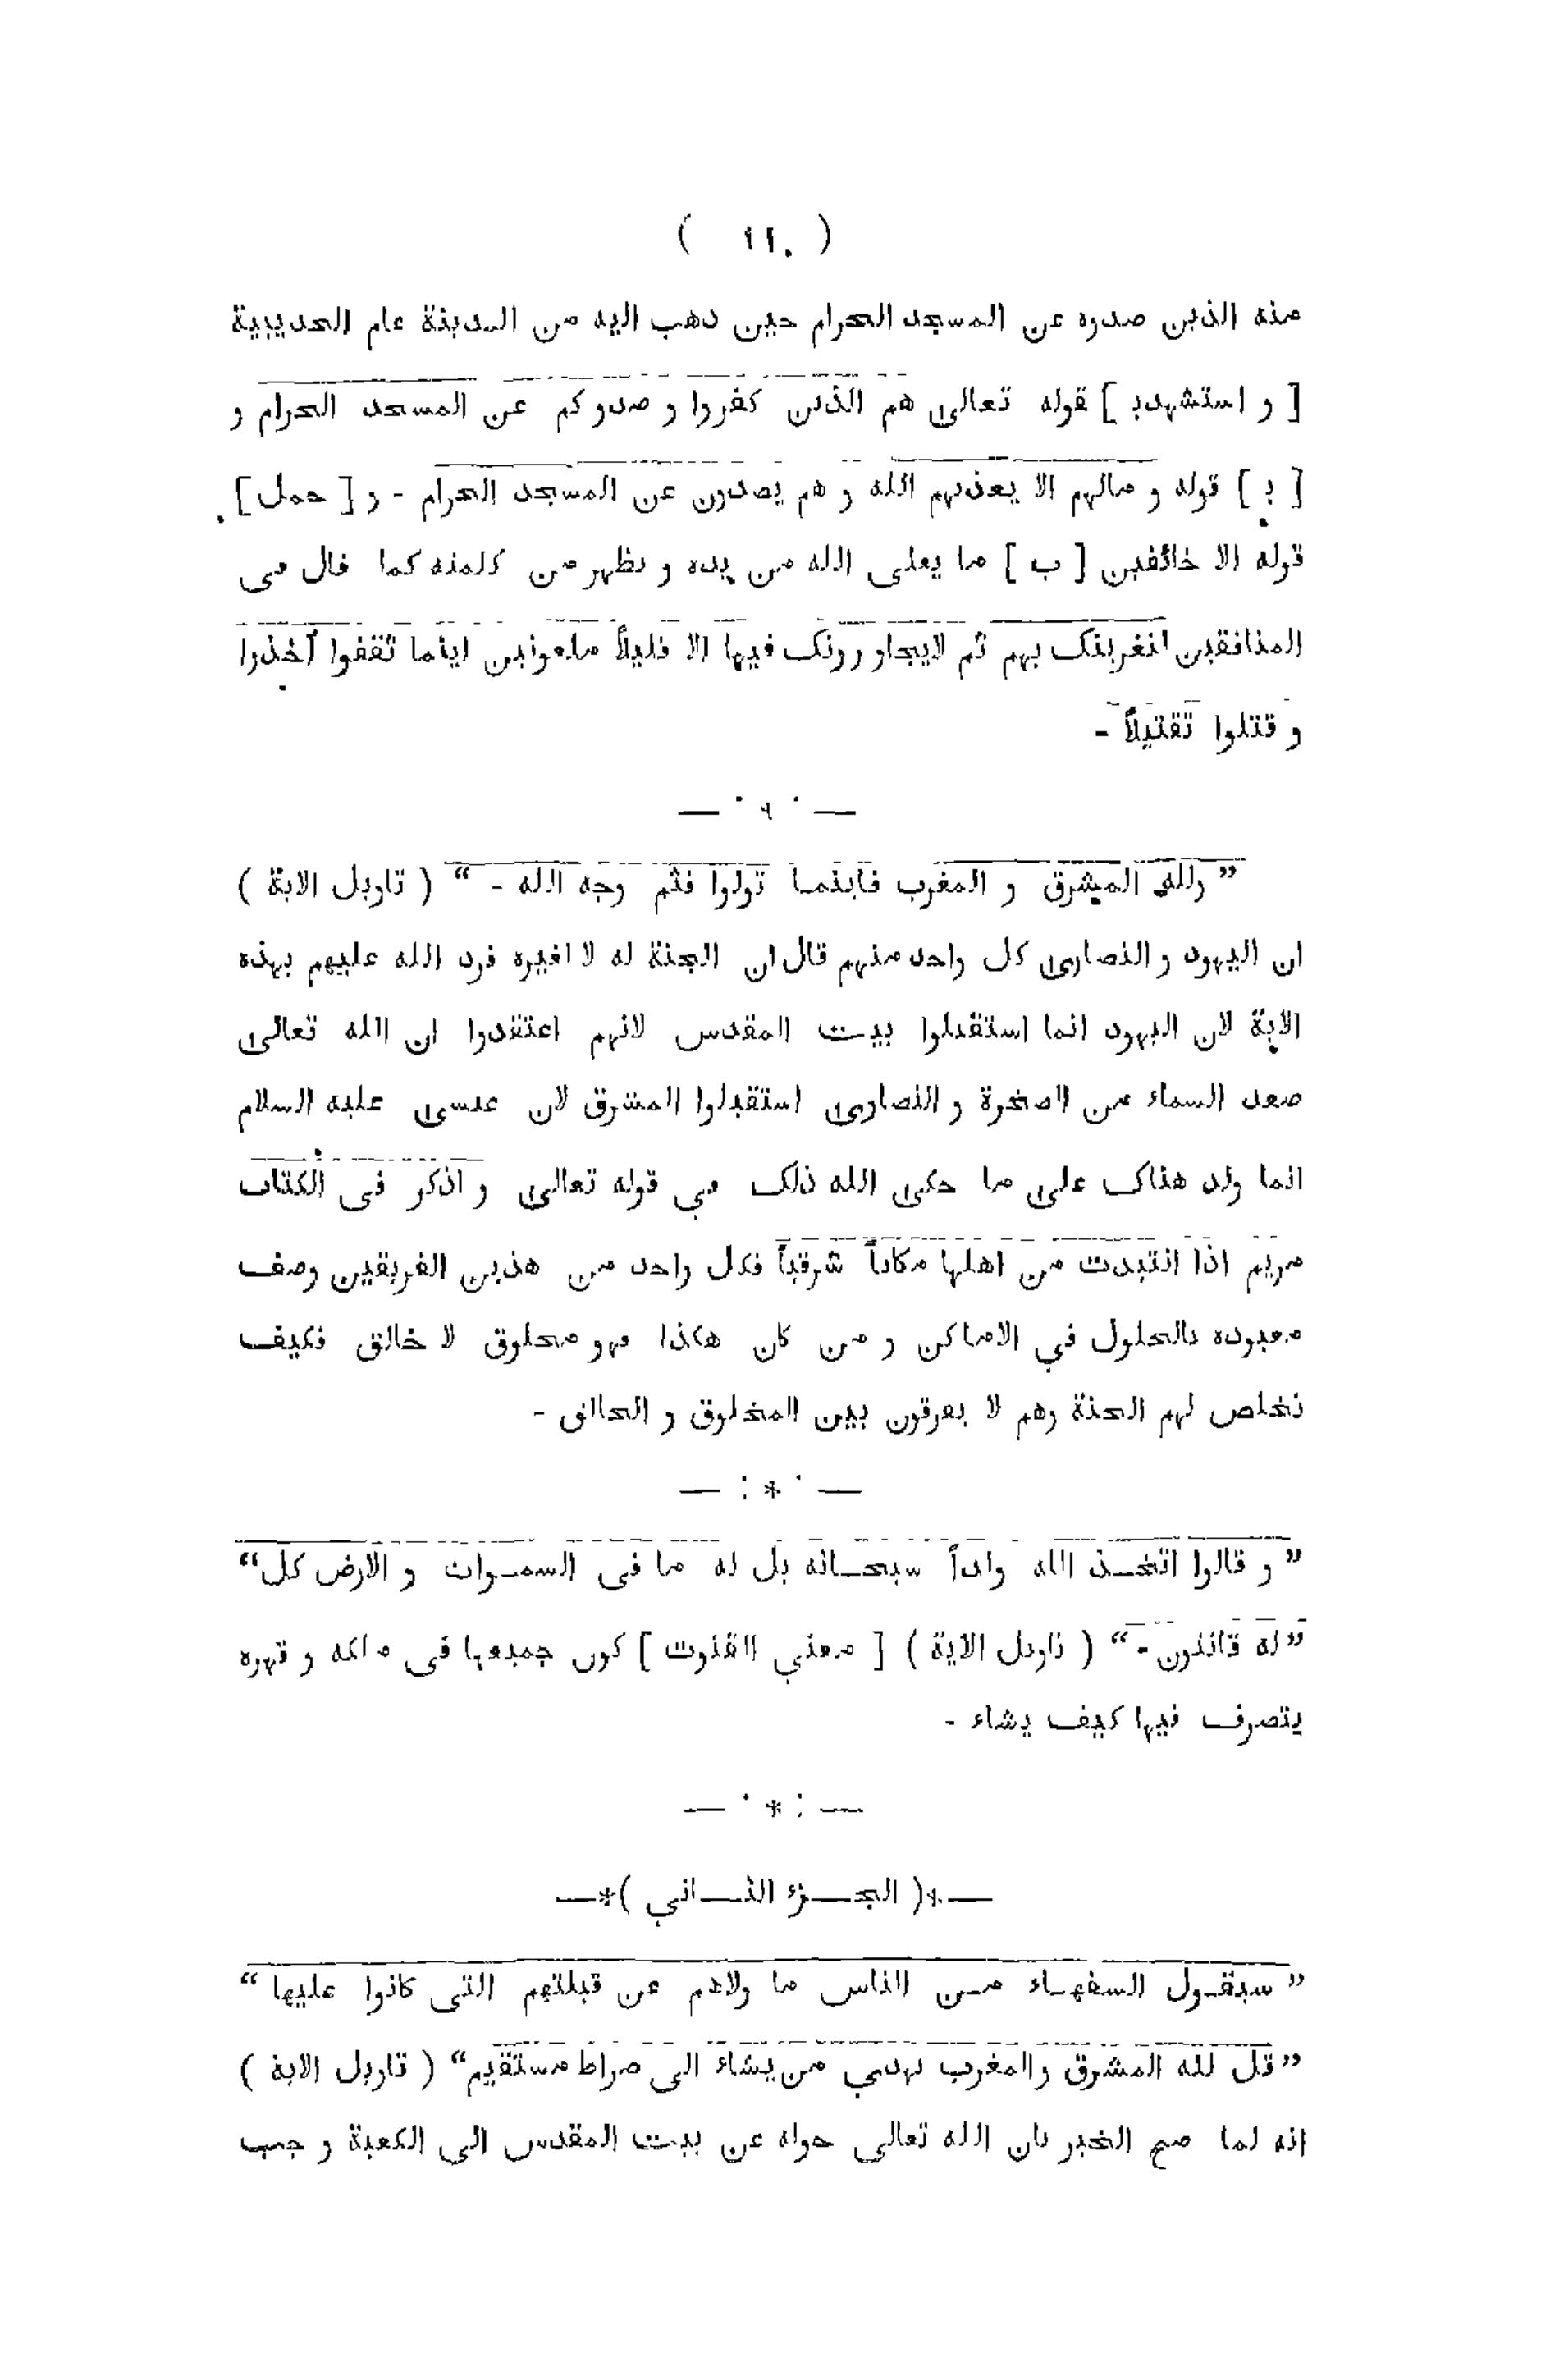 ( ١١٠ )
منه الذين صدوه عن المسجد الحرام حين ذهب اليه من المدينة عام الحديبية
[ و استشهد ] قوله تعالى هم الذين كفروا و صدوكم عن المسجد الحرام و
[ ب ] قوله و مالهم الا يعذبهم الله و هم يصدون عن المسجد الحرام - و [ حمل ]
قوله الا خائفين [ ب ] ما يعلى الله من يده و يظهر من كلمته كما قال فى
المنافقين لنغرينك بهم ثم لايجاورونك فيها الا قليلاً ملعونين اينما ثقفوا اخذوا
و قتلوا تقتيلاً -
” ولله المشرق و المغرب فاينما تولوا فثم وجه الله - “ ( تاويل الاية )
ان اليهود و النصارى كل واحد منهم قال ان الجنة له لا لغيره فرد الله عليهم بهذه
الاية لان اليهود انما استقبلوا بيت المقدس لانهم اعتقدوا ان الله تعالى
صعد السماء من الصخرة و النصارى استقبلوا المشرق لان عيسى عليه السلام
انما ولد هناك على ما حكى الله ذلك في قوله تعالى و اذكر فى الكتاب
مريم اذا انتبذت من اهلها مكاناً شرقياً فكل واحد من هذين الفريقين وصف
معبوده بالحلول في الاماكن و من كان هكذا فهو مخلوق لا خالق فكيف
تخلص لهم الجنة وهم لا يفرقون بين المخلوق و الخالق -
— : * : —
” و قالوا اتخــذ الله ولداً سبحــانه بل له ما فى السمــوات و الارض كل “
” له قانتون - “ ( تاويل الاية ) [ معني القنوت ] كون جميعها فى ملكه و قهره
يتصرف فيها كيف يشاء -
— : * : —
—*( الجــزء الثــاني )*—
” سيقــول السفهــاء مــن الناس ما ولاهم عن قبلتهم التى كانوا عليها “
” قل لله المشرق والمغرب يهدي من يشاء الى صراط مستقيم “ ( تاويل الاية )
انه لما صح الخبر بان الله تعالى حوله عن بيت المقدس الى الكعبة و جب